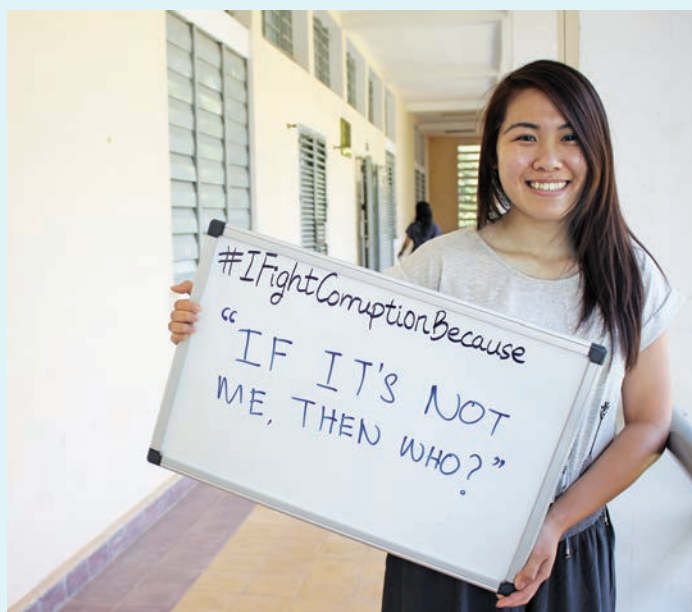 #IFightCorruptionBecause
"IF IT'S NOT
ME, THEN WHO?"